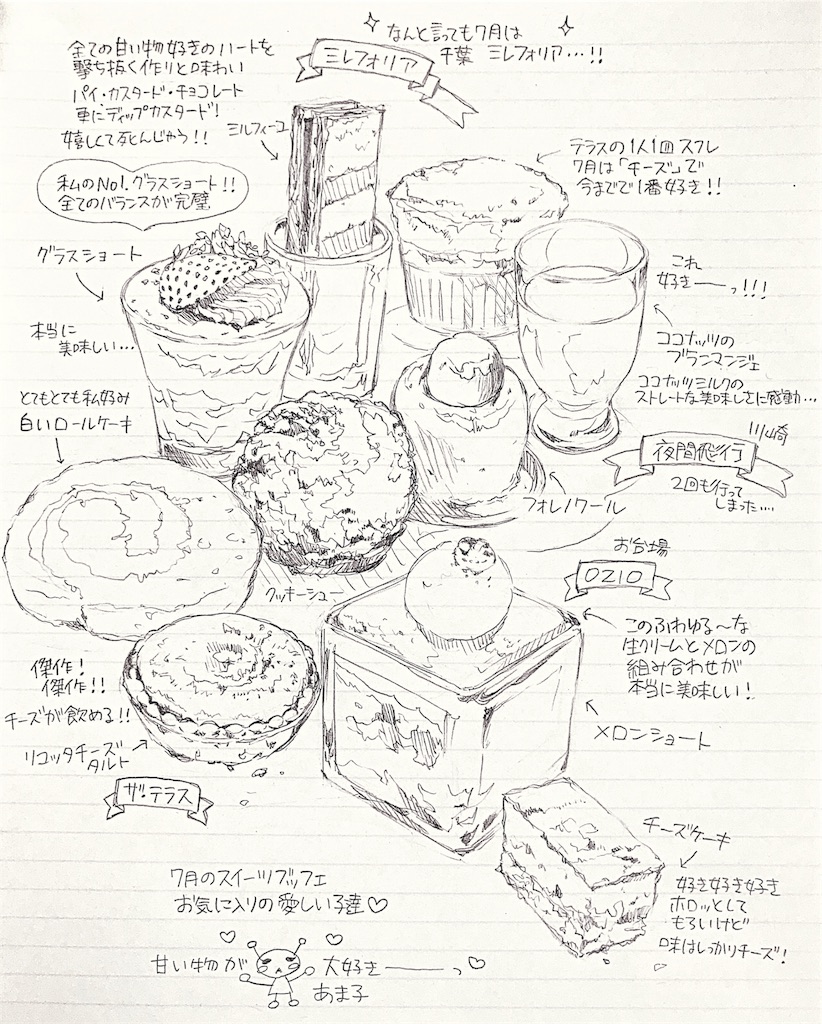 なんと言っても7月は
千葉 ミレフォリア…!!
ミレフォリア
全ての甘い物好きのハートを
撃ち抜く作りと味わい
パイ・カスタード・チョコレート
更にディップカスタード!
嬉しくて死んじゃう!!
ミルフィーユ
私のNo1.グラスショート!!
全てのバランスが完璧
グラスショート
本当に
美味しい…
テラスの1人1皿スフレ
7月は「チーズ」で
今までで1番好き!!
これ
好きーーっ!!!
ココナッツの
ブランマンジェ
ココナッツミルクの
ストレートな美味しさに感動…
とてもとても私好み
白いロールケーキ
川崎
夜間飛行
2回も行って
しまった…
フォレノワール
クッキーシュー
お台場
OZIO
このふわゆる〜な
生クリームとメロンの
組み合わせが
本当に美味しい!
メロンショート
傑作!
傑作!!
チーズが飲める!!
リコッタチーズ
タルト
ザ・テラス
チーズケーキ
好き好き好き
ホロッとして
もろいけど
味はしっかりチーズ!
7月のスイーツブッフェ
お気に入りの愛しい子達♡
甘い物が 大好きーーーっ♡
あま子